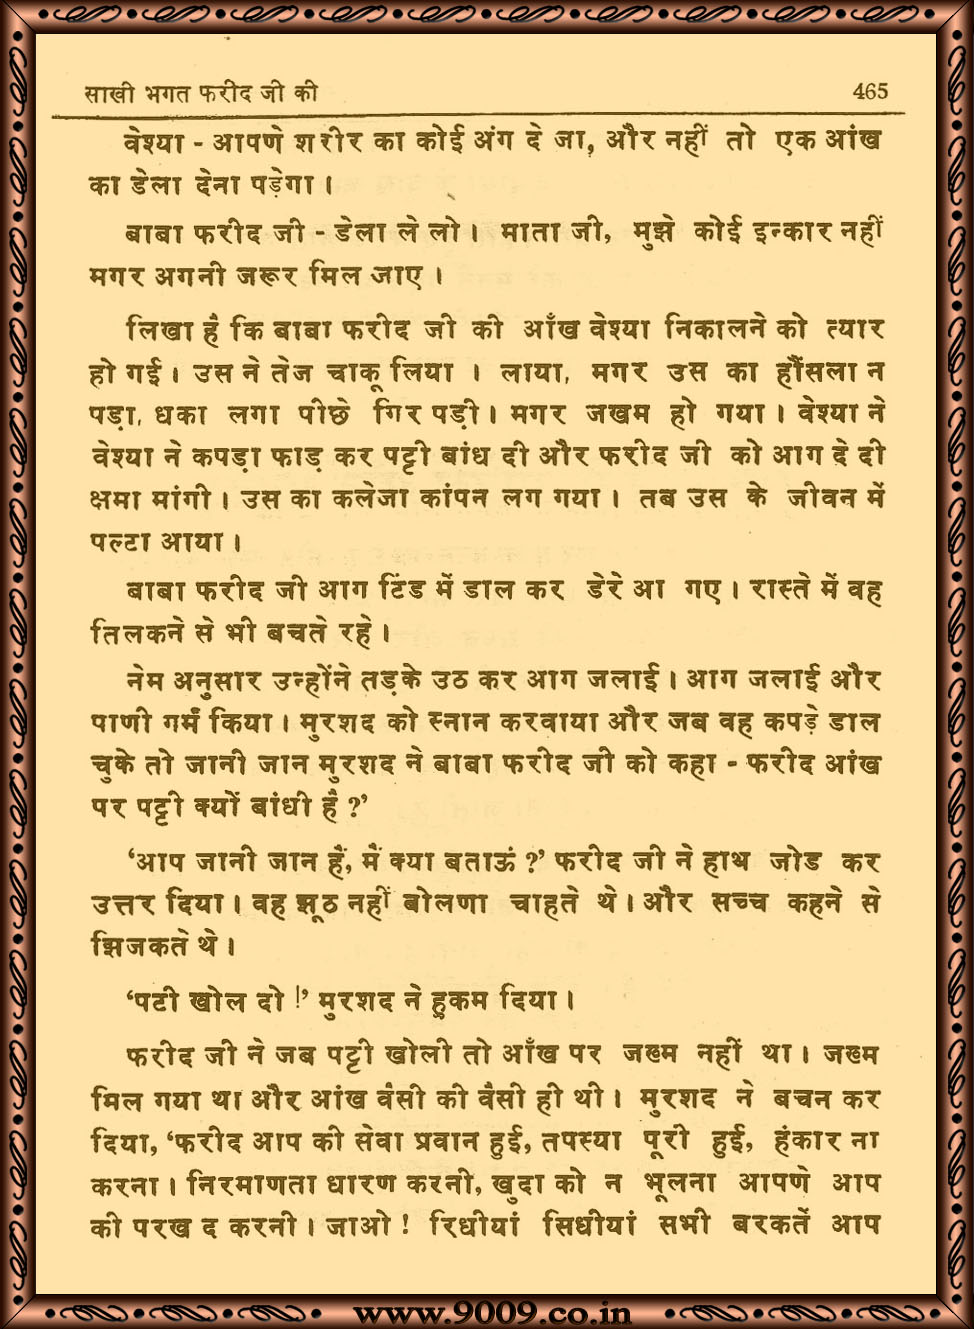 साखी भगत फरीद जी की 465
वेश्या - आपणे शरीर का कोई अंग दे जा, और नहीं तो एक आंख
का डेला देना पड़ेगा ।
बाबा फरीद जी - डेला ले लो । माता जी, मुझे कोई इन्कार नहीं
मगर अगनी जरूर मिल जाए ।
लिखा है कि बाबा फरीद जी की आँख वेश्या निकालने को त्यार
हो गई । उस ने तेज चाकू लिया । लाया, मगर उस का हौंसला न
पड़ा, धका लगा पीछे गिर पड़ी । मगर जखम हो गया । वेश्या ने
वेश्या ने कपड़ा फाड़ कर पट्टी बांध दी और फरीद जी को आग दे दी
क्षमा मांगी । उस का कलेजा कांपन लग गया । तब उस के जीवन में
पल्टा आया ।
बाबा फरीद जी आग टिंड में डाल कर डेरे आ गए । रास्ते में वह
तिलकने से भी बचते रहे ।
नेम अनुसार उन्होंने तड़के उठ कर आग जलाई । आग जलाई और
पाणी गर्म किया । मुरशद को स्नान करवाया और जब वह कपड़े डाल
चुके तो जानी जान मुरशद ने बाबा फरीद जी को कहा - फरीद आंख
पर पट्टी क्यों बांधी है ?’
‘आप जानी जान हैं, मैं क्या बताऊं ?’ फरीद जी ने हाथ जोड कर
उत्तर दिया । वह झूठ नहीं बोलणा चाहते थे । और सच्च कहने से
झिजकते थे ।
‘पटी खोल दो !’ मुरशद ने हुकम दिया ।
फरीद जी ने जब पट्टी खोली तो आँख पर जख्म नहीं था । जख्म
मिल गया था और आंख वैसी की वैसी ही थी । मुरशद ने बचन कर
दिया, ‘फरीद आप की सेवा प्रवान हुई, तपस्या पूरी हुई, हंकार ना
करना । निरमाणता धारण करनी, खुदा को न भूलना आपणे आप
की परख द करनी । जाओ ! रिधीयां सिधीयां सभी बरकतें आप
www.9009.co.in